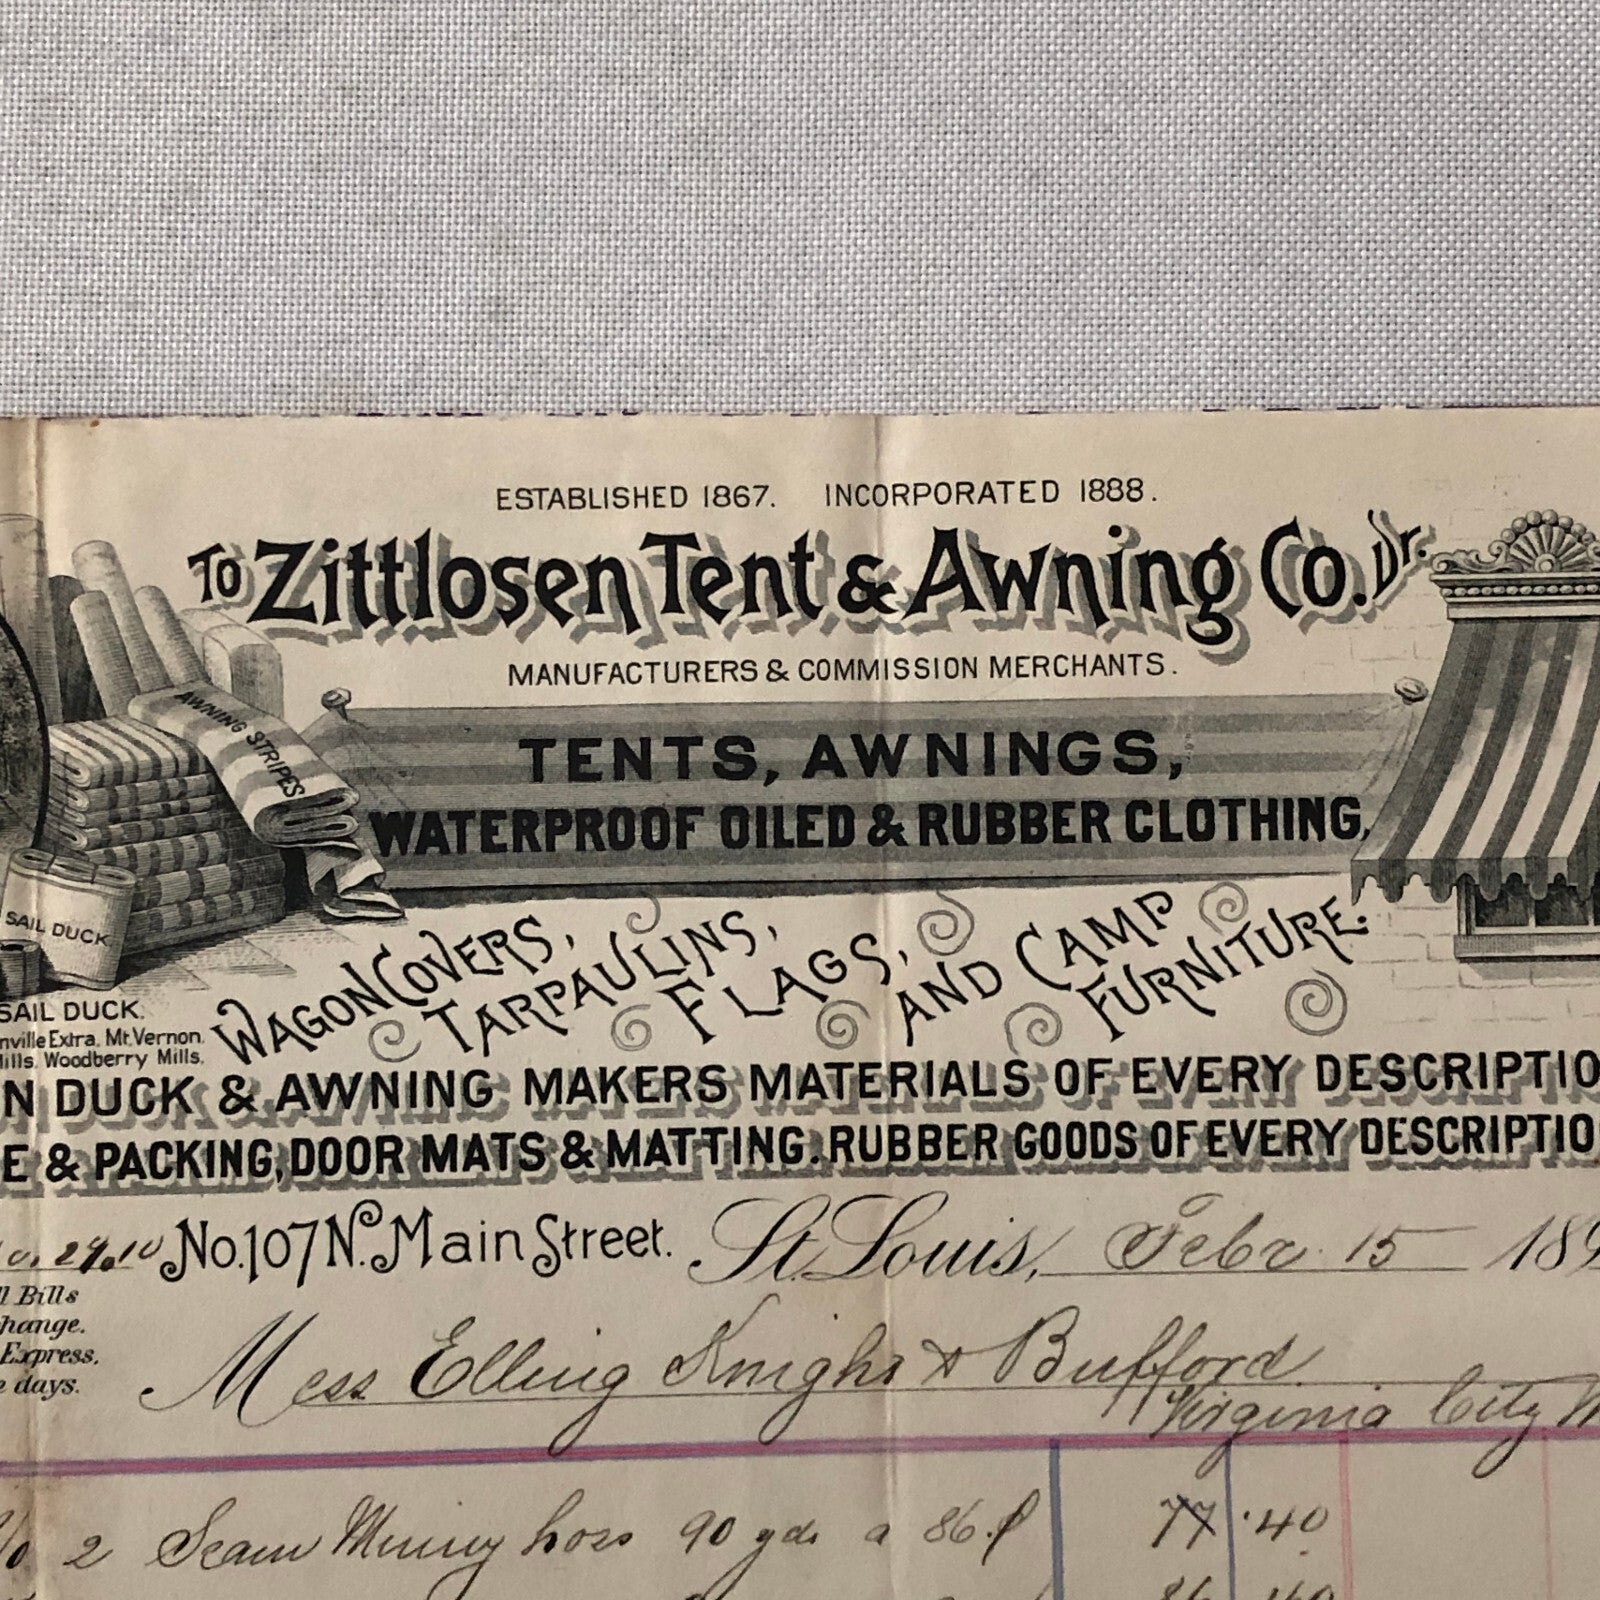 ESTABLISHED 1867. INCORPORATED 1888.
TO Zittlosen Tent & Awning Co. Dr.
MANUFACTURERS & COMMISSION MERCHANTS.
AWNING STRIPES
TENTS, AWNINGS,
WATERPROOF OILED & RUBBER CLOTHING,
SAIL DUCK
WAGON COVERS, TARPAULINS, FLAGS, AND CAMP FURNITURE.
SAIL DUCK.
nville Extra. Mt. Vernon.
ills. Woodberry Mills.
N DUCK & AWNING MAKERS MATERIALS OF EVERY DESCRIPTIO
E & PACKING, DOOR MATS & MATTING. RUBBER GOODS OF EVERY DESCRIPTIO
No. 107 No. Main Street. St. Louis, Febr. 15 189
l Bills
hange.
Express.
e days.
Mess Elling Knight & Bufford
Virginia City M
2 Seam Mining hose 90 yds a 86 77.40
86 40